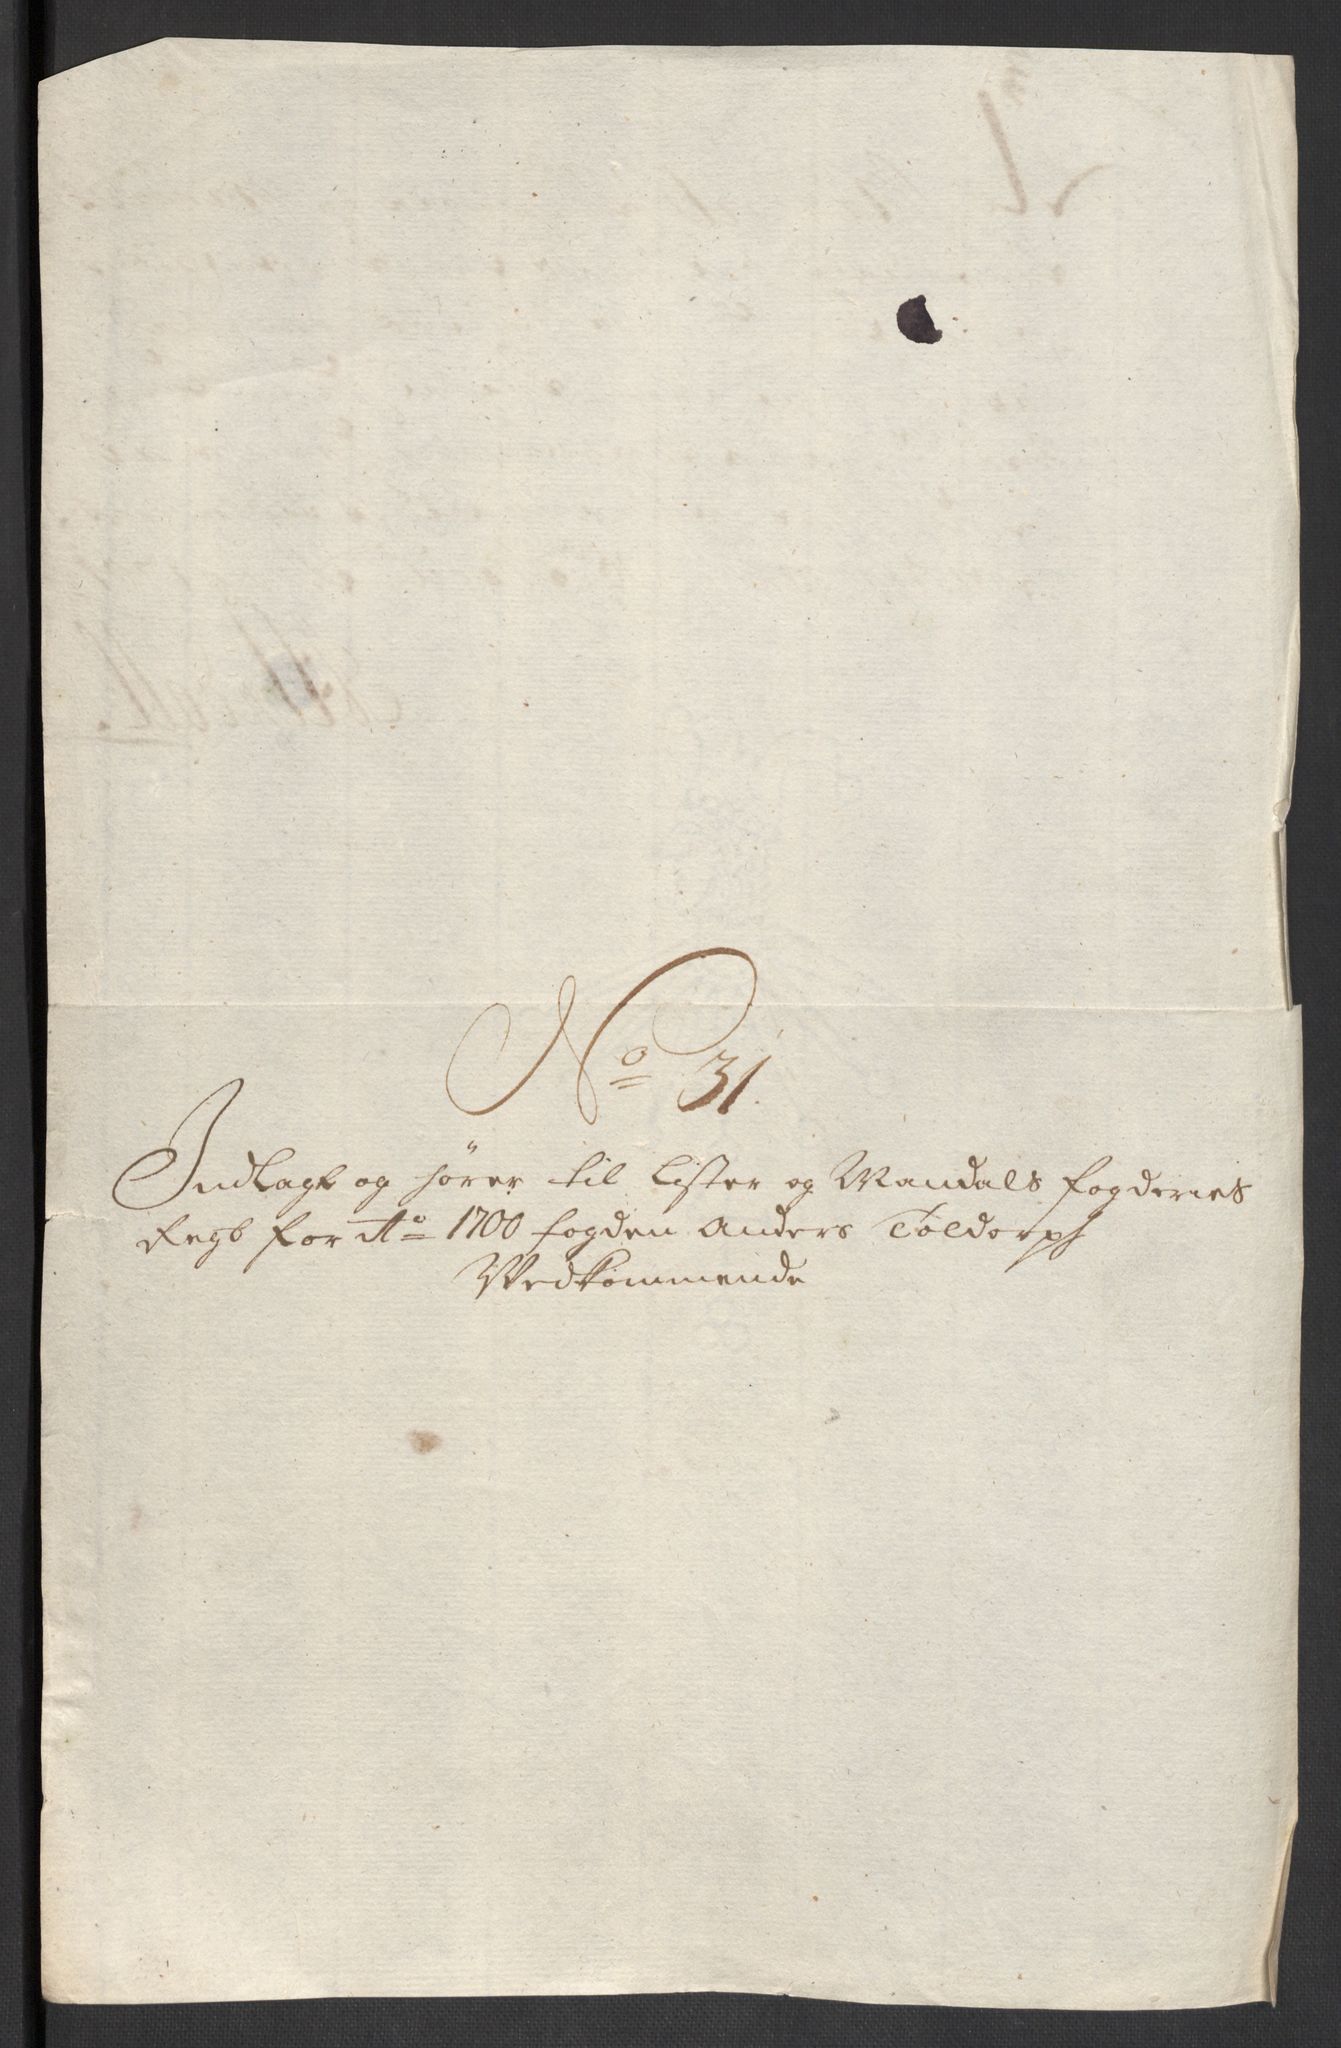 No 31.
Indlagt og hörer til Lister og Mandals fogderies
Regb for Ao 1700 fogden Anders Toldorph
Vedkommende